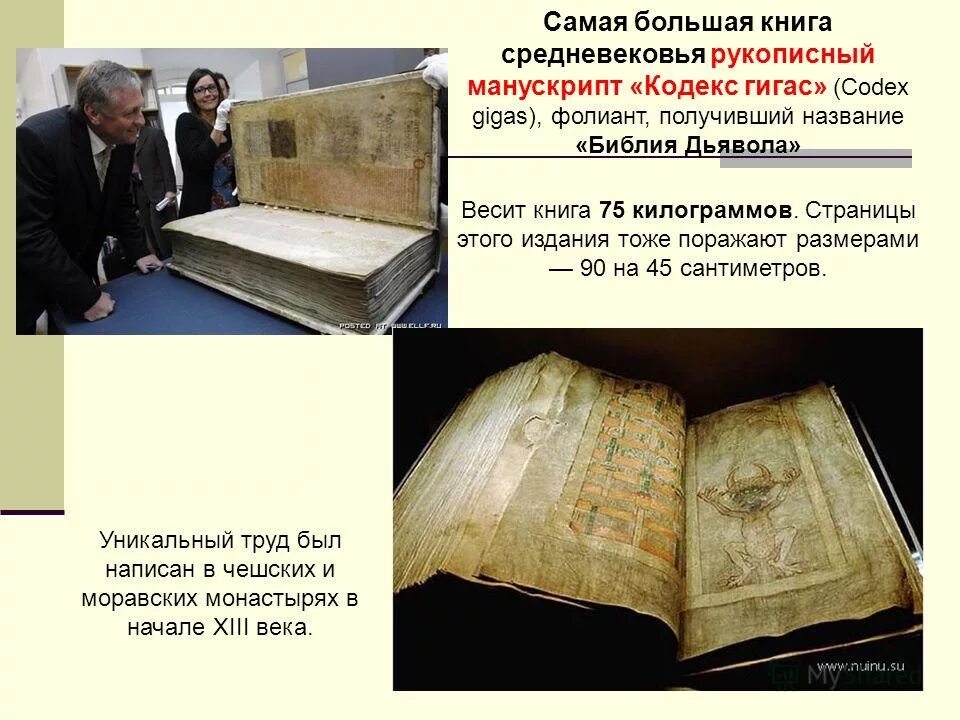 Самая большая книга
средневековья рукописный
манускрипт «Кодекс гигас» (Codex
gigas), фолиант, получивший название
«Библия Дьявола»
Весит книга 75 килограммов. Страницы
этого издания тоже поражают размерами
— 90 на 45 сантиметров.
POSTED AT WWWELLF.RU
Уникальный труд был
написан в чешских и
моравских монастырях в
начале XIII века.
www.nuinu.su
MyShared